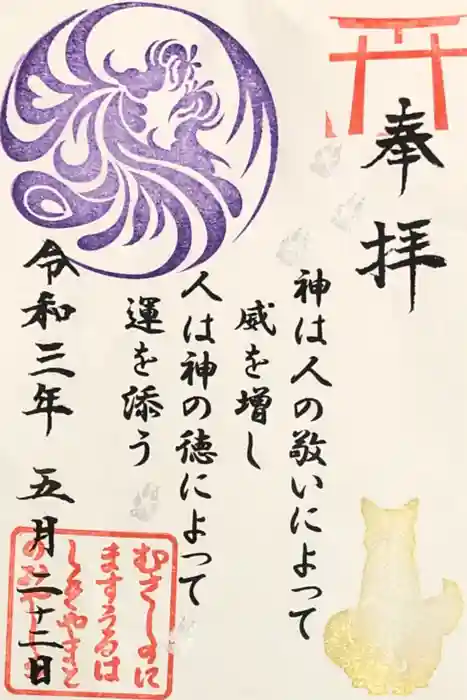 奉拝
神は人の敬いによって
威を増し
人は神の徳によって
運を添う
令和三年 五月二十二日
むさしのに
ますうるは
しきやまと
のみやしろ